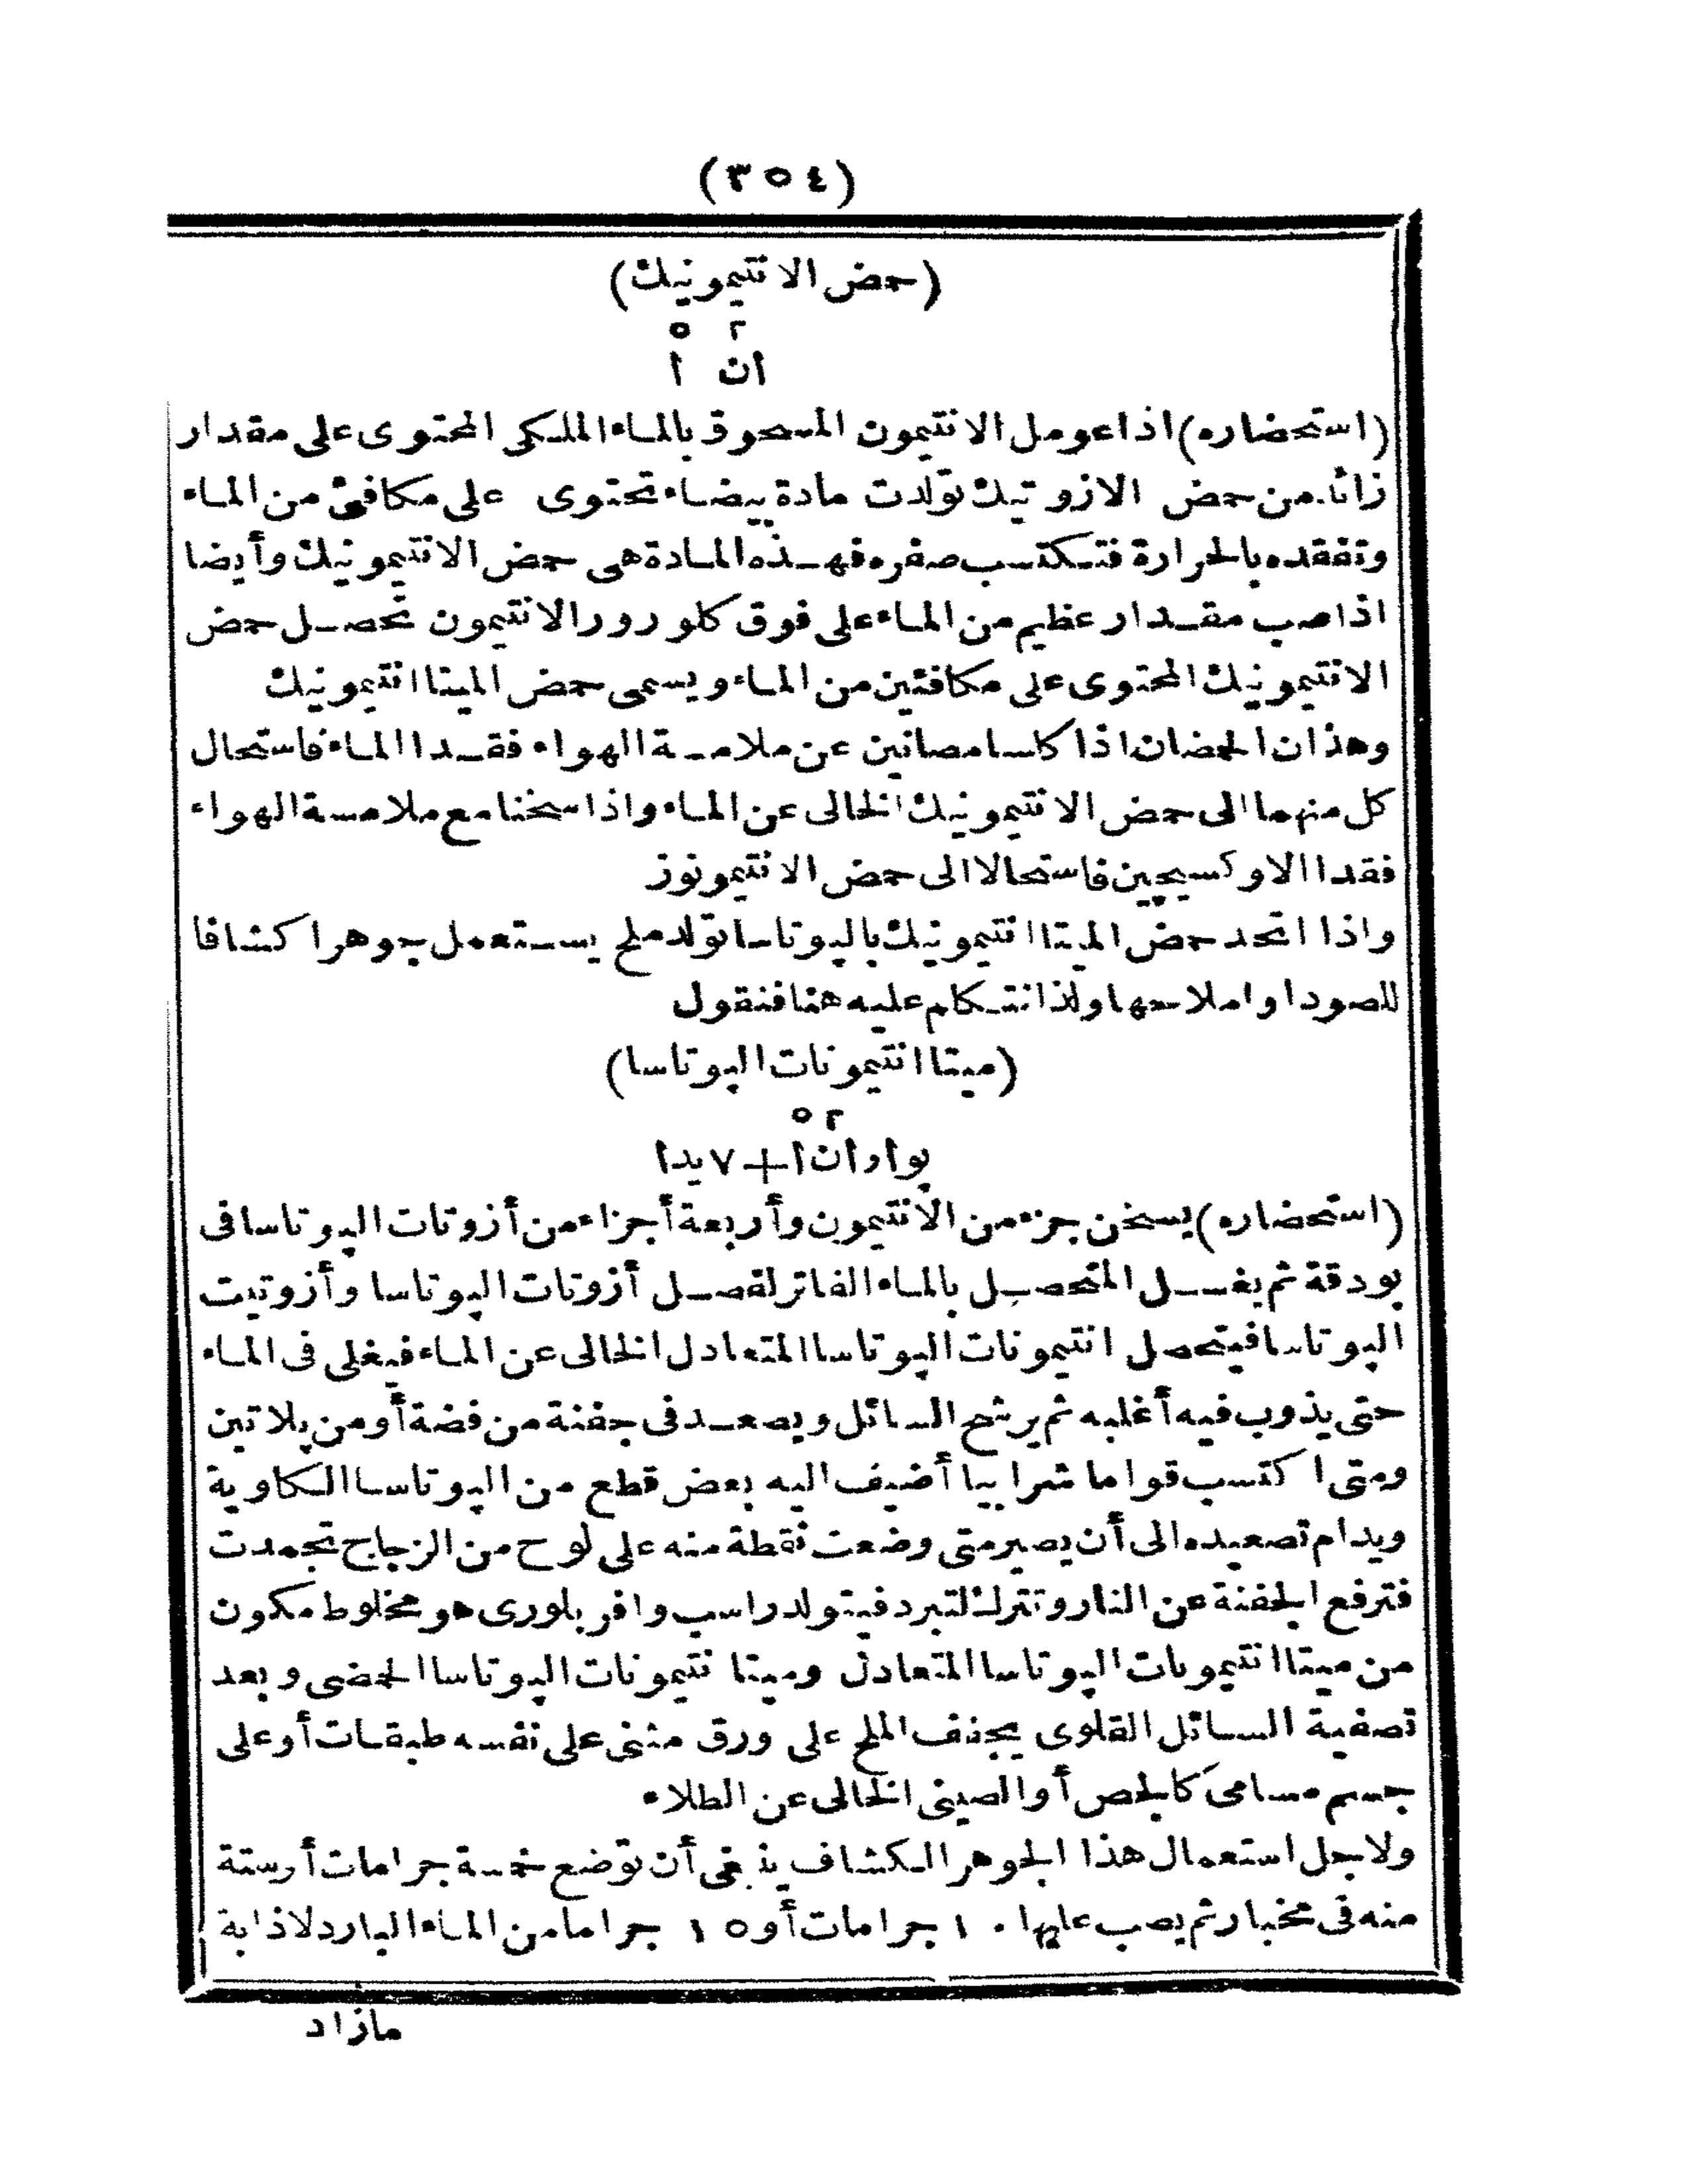 (٣٥٤)
(حمض الانتيمونيك)
٢ ٥
ان ا
(استحضاره) اذا عومل الانتيمون المسحوق بالماء الملكى المحتوى على مقدار
زائد من حمض الازوتيك تولدت مادة بيضاء تحتوى على مكافئ من الماء
وتفقده بالحرارة فتكتسب صفره فهذه المادة هى حمض الانتيمونيك وأيضا
اذا صب مقدار عظيم من الماء على فوق كلورور الانتيمون تحصل حمض
الانتيمونيك المحتوى على مكافئين من الماء ويسمى حمض الميتا انتيمونيك
وهذان الحمضان اذا كاسا مصانين عن ملامسة الهواء فقدا الماء فاستحال
كل منهما الى حمض الانتيمونيك الخالى عن الماء واذا سخنا مع ملامسة الهواء
فقدا الاوكسيجين فاستحالا الى حمض الانتيمونوز
واذا اتحد حمض الميتا انتيمونيك بالبوتاسا تولد ملح يستعمل جوهرا كشافا
للصودا واملاحها ولذا نتكلم عليه هنا فنقول
(ميتا انتيمونات البوتاسا)
٢ ٥
بوا وان ا + ٧ يدا
(استحضاره) يسخن جزء من الانتيمون وأربعة أجزاء من أزوتات البوتاسا فى
بودقة ثم يغسل المتحصل بالماء الفاتر لفصل أزوتات البوتاسا وأزوتيت
البوتاسا فيتحصل انتيمونات البوتاسا المتعادل الخالى عن الماء فيغلى فى الماء
حتى يذوب فيه أغلبه ثم يرشح السائل ويصعد فى جفنة من فضة أو من بلاتين
ومتى اكتسب قواما شرابيا أضيف اليه بعض قطع من البوتاسا الكاوية
ويدام تصعيده الى أن يصير متى وضعت نقطة منه على لوح من الزجاج تجمدت
فترفع الجفنة عن النار وتترك لتبرد فيتولد راسب وافر بلورى هو مخلوط مكون
من ميتا انتيمونات البوتاسا المتعادل وميتا نتيمونات البوتاسا الحمضى وبعد
تصفية السائل القلوى يجفف الملح على ورق مثنى على نفسه طبقات أو على
جسم مسامى كالجص أو الصينى الخالى عن الطلاء
ولاجل استعمال هذا الجوهر الكشاف ينبغى أن توضع خمسة جرامات أو ستة
منه فى مخبار ثم يصب عليها ١٠ جرامات أو ١٥ جراما من الماء البارد لاذابة
مازاد